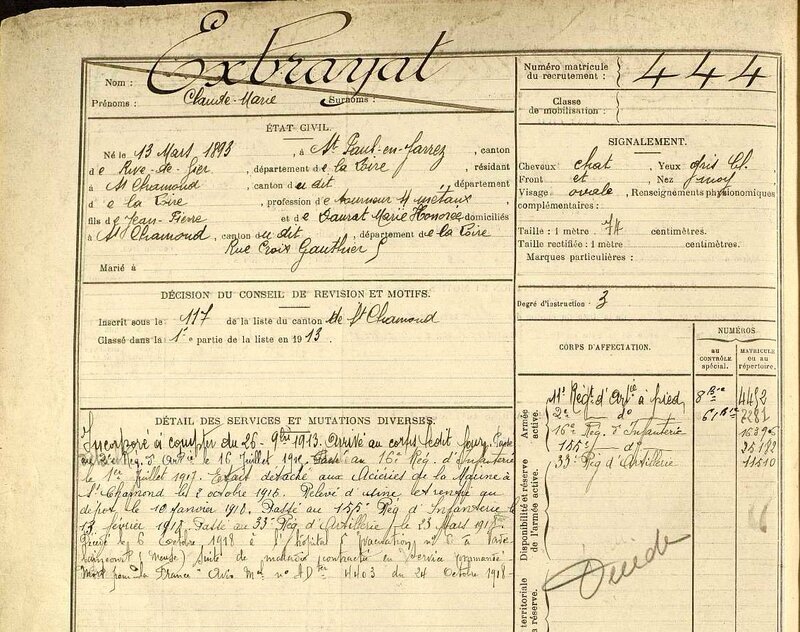 Exbrayat
Nom :
Prénoms : Claude-Marie Surnoms :
Numéro matricule
du recrutement : 444
Classe
de mobilisation :
ÉTAT CIVIL.
Né le 13 Mars 1893, à St Paul-en-Jarrez, canton
de Rive-de-Gier, département de la Loire, résidant
à St Chamond, canton du dit, département
de la Loire, profession de tourneur s/ métaux
fils de Jean-Pierre et de Daurat Marie Honorée domiciliés
à St Chamond, canton du dit, département de la Loire
Rue Croix Gauthier 5
Marié à
SIGNALEMENT.
Cheveux chat Yeux gris cl.
Front et Nez moy
Visage ovale, Renseignements physionomiques
complémentaires :
Taille : 1 mètre 74 centimètres.
Taille rectifiée : 1 mètre centimètres.
Marques particulières :
DÉCISION DU CONSEIL DE REVISION ET MOTIFS.
Inscrit sous le n° 117 de la liste du canton de St Chamond
Classé dans la 1e partie de la liste en 1913.
Degré d'instruction : 3
CORPS D'AFFECTATION.
NUMÉROS
au
CONTRÔLE
spécial.
MATRICULE
ou au
répertoire.
Armée
active.
11e Régt d'Artie à pied, 8 Bie 4482
2e — do — 61 Bie
16e Rég. d'Infanterie
155e — do —
33e Rég d'Artillerie
Disponibilité et réserve
de l'armée active.
territoriale
sa réserve.
DÉTAIL DES SERVICES ET MUTATIONS DIVERSES.
Incorporé à compter du 26 9bre 1913. Arrivé au corps le dit jour. Passé
au 2e Rég. d'Artie le 16 Juillet Passé au 16e Rég. d'Infanterie
le 1er Juillet 1917. Etait détaché aux Aciéries de la Marine à
St Chamond le 2 octobre 1916. Relevé d'usine et rentré au
dépôt le 10 janvier 1918. Passé au 155e Rég d'Infanterie le
13 février 1918. Passé au 33e Rég d'Artillerie le 23 Mars 1918.
Décédé le 6 Octobre 1918 à l'hôpital d'évacuation n° 6 à
(Meuse) Suite de maladie contractée en service commandé
"Mort pour la France" Avis Mel n° 4403 du 24 Octobre 1918